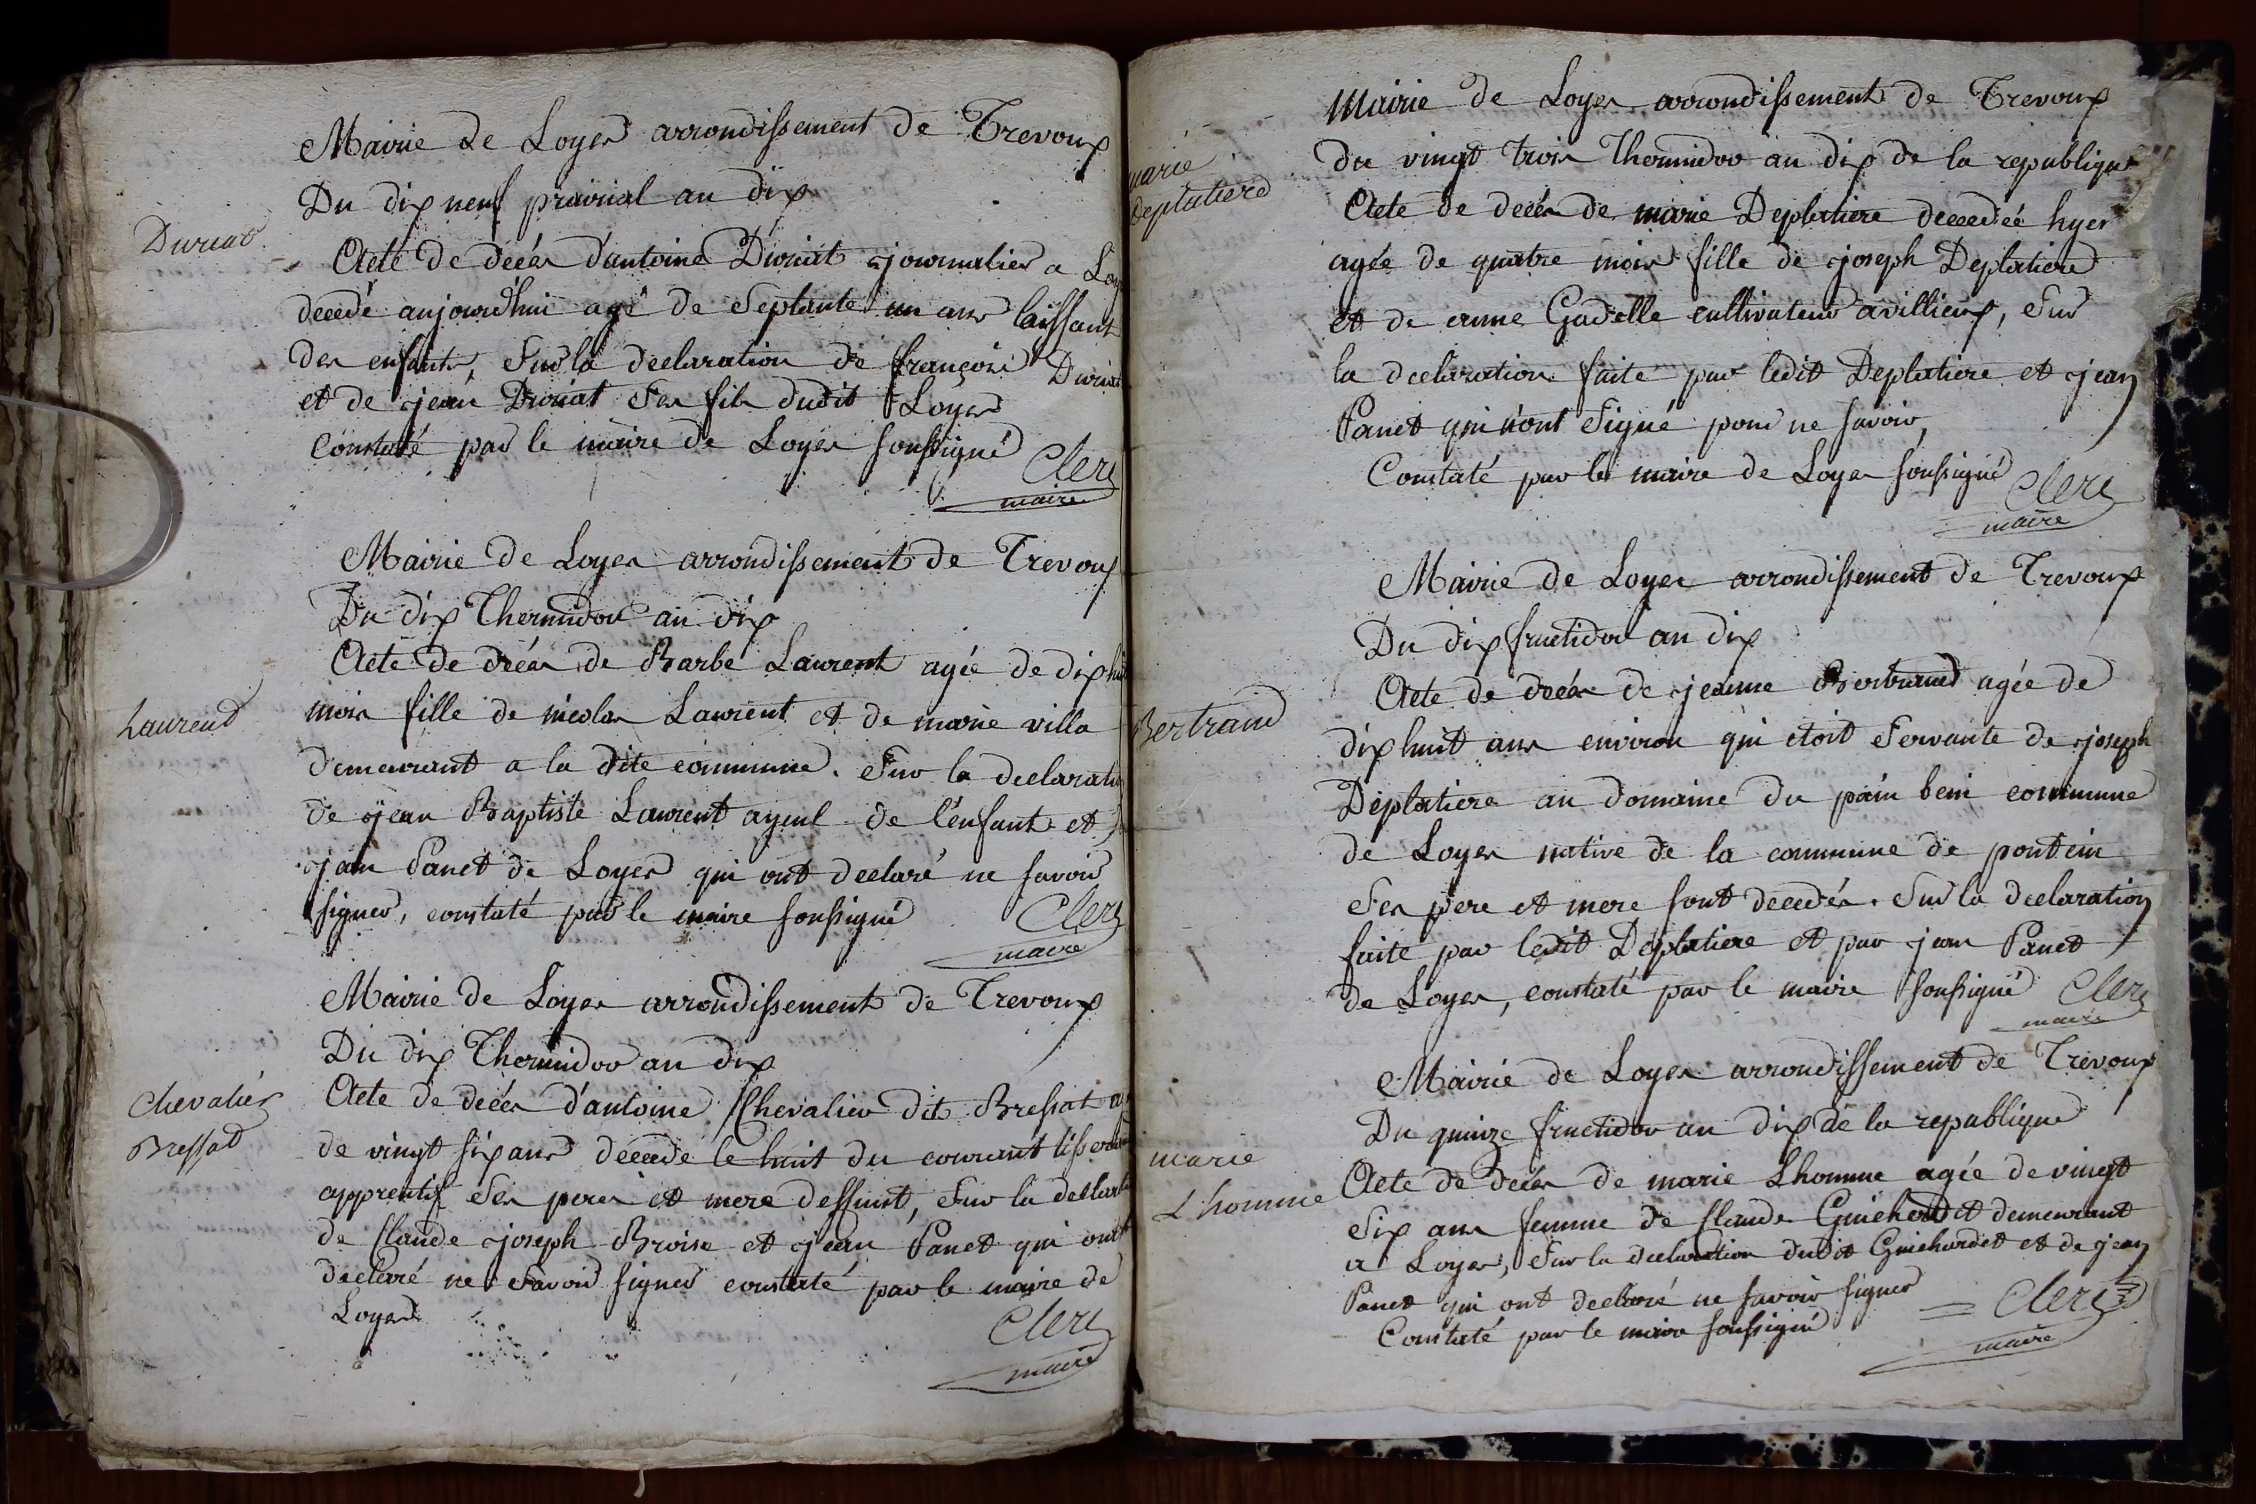 Duriat
Mairie de Loyes arrondissement de Trevoux
Du dix neuf prairial an dix
Acte de décés d'antoine Duriat journalier a Loy
decedé aujourd'hui agé de Septante un ans laissant
des enfants, Sur la declaration de françois Duriat
et de jean Duriat Ses fils dudit Loyes
Constaté par le maire de Loyes soussigné
Clerc
maire
Laurend
Mairie de Loyes arrondissement de Trevoux
Du dix Thermidor an dix
Acte de décés de Barbe Laurent agée de dix hui
mois fille de nicolas Laurent et de marie villa
demeurant a la dite commune. Sur la declaratio
de jean Baptiste Laurent ayeul de l'enfant et
jean Panet de Loyes qui ont declaré ne savoir
signer, constaté par le maire soussigné
Clerc
maire
Chevalier
Bressat
Mairie de Loyes arrondissement de Trevoux
Du dix Thermidor an dix
Acte de décés d'antoine Chevalier dit Bressat a
de vingt six ans decedé le huit du courant tisserand
apprentif Ses peres et mere deffunt, Sur la declara
de Claude joseph Broise et jean Panet qui ont
declaré ne Savoir signer constaté par le maire de
Loyes
Clerc
maire
marie
Deplatiere
Mairie de Loyes arrondissement de Trevoux
du vingt trois Thermidor an dix de la republique
Acte de décés de marie Deplatiere decedéé hyer
agée de quatre mois fille de joseph Deplatiere
et de anne Gadelle cultivateur avillieux, Sur
la declaration faite par ledit Deplatiere et jean
Panet qui n'ont Signé pour ne savoir,
Constaté par le maire de Loyes soussigné
Clerc
maire
Bertrand
Mairie de Loyes arrondissement de Trevoux
Du dix fructidor an dix
Acte de décés de jeanne Bertrand agée de
dix huit ans environ qui étoit Servante de joseph
Deplatiere au domaine du pain beni commune
de Loyes native de la commune de pontein
Ses pere et mere sont decedés. Sur la declaration
faite par ledit Deplatiere et par jean Panet
de Loyes, constaté par le maire soussigné
Clerc
maire
marie
L'homme
Mairie de Loyes arrondissement de Trevoux
Du quinze fructidor an dix de la republique
Acte de décés de marie Lhomme agée de vingt
Six ans femme de Claude Guichardet demeurant
a Loyes, Sur la declaration dudit Guichardet et de jean
Panet qui ont declaré ne savoir signer
Constaté par le maire soussigné
Clerc
maire